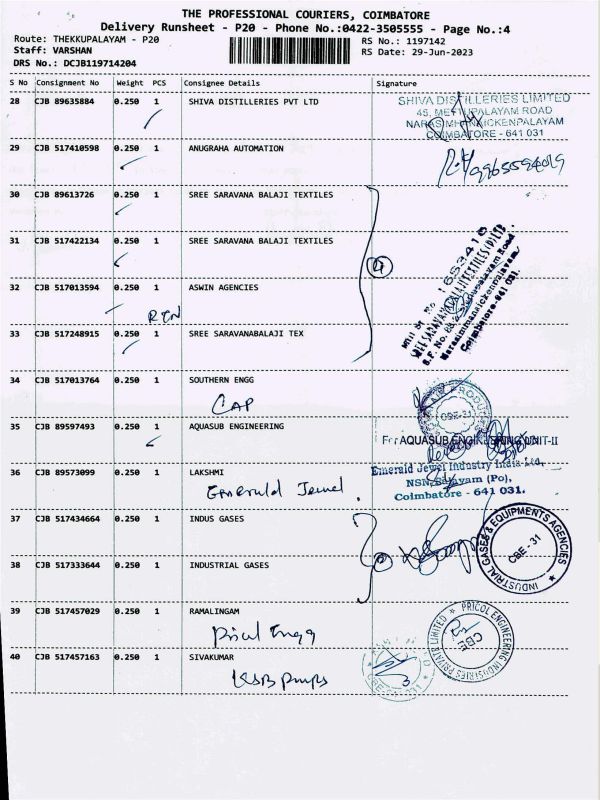 THE PROFESSIONAL COURIERS, COIMBATORE
Delivery Runsheet - P20 - Phone No.:0422-3505555 - Page No.:4
Route: THEKKUPALAYAM - P20
RS No.: 1197142
Staff: VARSHAN
RS Date: 29-Jun-2023
DRS No.: DCJB119714204
S No Consignment No Weight PCS Consignee Details Signature
28 CJB 89635884 0.250 1 SHIVA DISTILLERIES PVT LTD
SHIVA DISTILLERIES LIMITED
45, METTUPALAYAM ROAD
NARASIMHANAICKENPALAYAM
COIMBATORE - 641 031
29 CJB 517410598 0.250 1 ANUGRAHA AUTOMATION
30 CJB 89613726 0.250 1 SREE SARAVANA BALAJI TEXTILES
31 CJB 517422134 0.250 1 SREE SARAVANA BALAJI TEXTILES
4
32 CJB 517013594 0.250 1 ASWIN AGENCIES
RTN
33 CJB 517248915 0.250 1 SREE SARAVANABALAJI TEX
Coimbatore-641 031.
34 CJB 517013764 0.250 1 SOUTHERN ENGG
CAP
CBE-31
35 CJB 89597493 0.250 1 AQUASUB ENGINEERING
For AQUASUB ENGINEERING UNIT-II
36 CJB 89573099 0.250 1 LAKSHMI
Emerald Jewel
Emerald Jewel Industry India Ltd,
NSN Palayam (Po),
Coimbatore - 641 031.
37 CJB 517434664 0.250 1 INDUS GASES
INDUSTRIAL GASES & EQUIPMENTS AGENCIES
CBE - 31
38 CJB 517333644 0.250 1 INDUSTRIAL GASES
39 CJB 517457029 0.250 1 RAMALINGAM
Pricol Engg
PRICOL ENGINEERING INDUSTRIES PRIVATE LIMITED
CBE
40 CJB 517457163 0.250 1 SIVAKUMAR
KSB Pumps